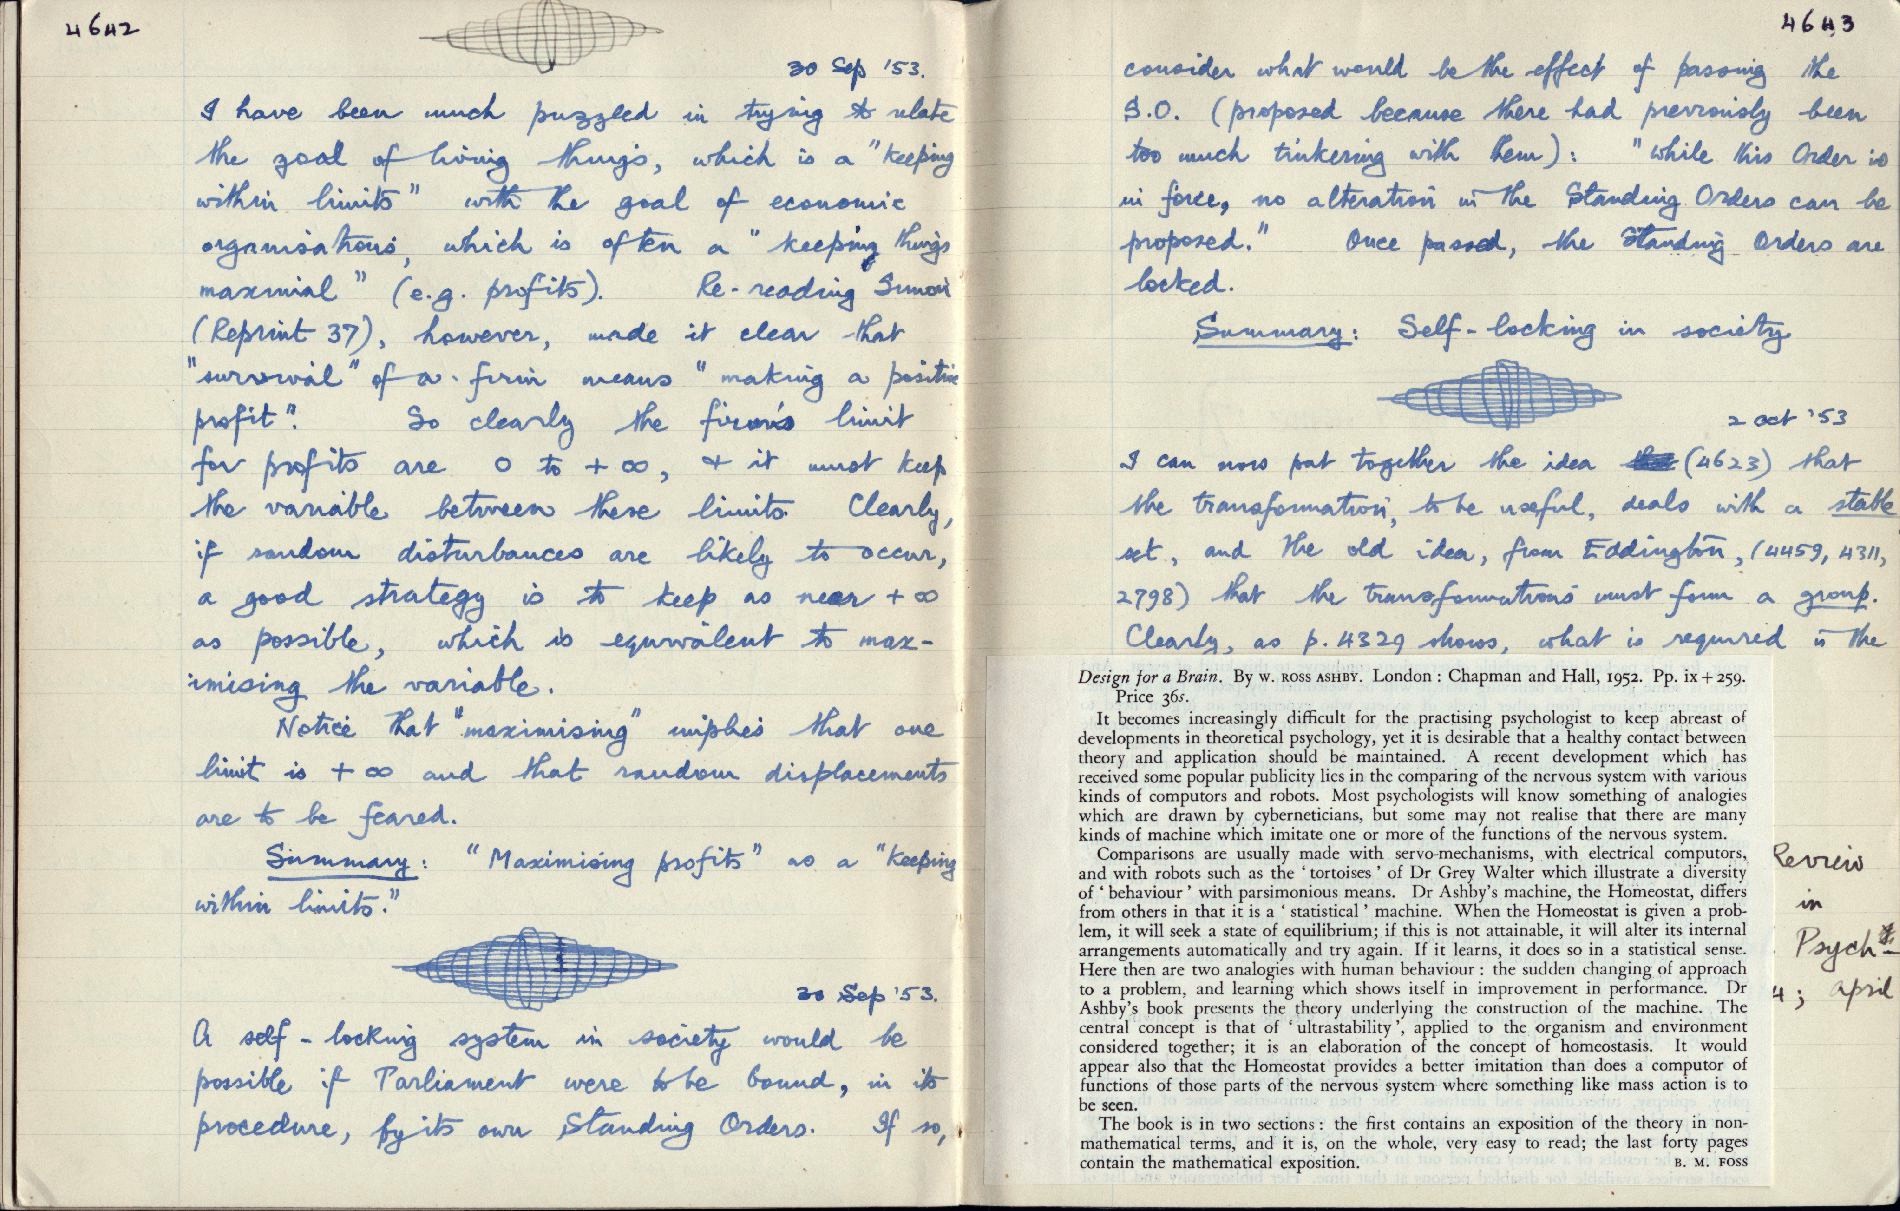 4642
30 Sep '53.
I have been much puzzled in trying to relate
the goal of living things, which is a "keeping
within limits" with the goal of economic
organisations, which is often a "keeping things
maximal" (e.g. profits). Re-reading Simon
(Reprint 37), however, made it clear that
"survival" of a firm means "making a positive
profit". So clearly the firm's limit
for profits are 0 to +∞, & it must keep
the variable between these limits. Clearly,
if random disturbances are likely to occur,
a good strategy is to keep as near +∞
as possible, which is equivalent to max-
imising the variable.
Notice that "maximising" implies that one
limit is +∞ and that random displacements
are to be feared.
Summary: "Maximising profits" as a "keeping
within limits."
30 Sep '53.
A self-locking system in society would be
possible if Parliament were to be bound, in its
procedure, by its own Standing Orders. If so,
4643
consider what would be the effect of passing the
S.O. (proposed because there had previously been
too much tinkering with them): "while this Order is
in force, no alteration in the Standing Orders can be
proposed." Once passed, the Standing Orders are
locked.
Summary: Self-locking in society
2 Oct '53
I can now put together the idea (4623) that
the transformation, to be useful, deals with a stable
set, and the old idea, from Eddington, (4459, 4311,
2798) that the transformations must form a group.
Clearly, as p. 4329 shows, what is required is the
Design for a Brain. By W. ROSS ASHBY. London: Chapman and Hall, 1952. Pp. ix+259.
Price 36s.
It becomes increasingly difficult for the practising psychologist to keep abreast of
developments in theoretical psychology, yet it is desirable that a healthy contact between
theory and application should be maintained. A recent development which has
received some popular publicity lies in the comparing of the nervous system with various
kinds of computors and robots. Most psychologists will know something of analogies
which are drawn by cyberneticians, but some may not realise that there are many
kinds of machine which imitate one or more of the functions of the nervous system.
Comparisons are usually made with servo-mechanisms, with electrical computors,
and with robots such as the 'tortoises' of Dr Grey Walter which illustrate a diversity
of 'behaviour' with parsimonious means. Dr Ashby's machine, the Homeostat, differs
from others in that it is a 'statistical' machine. When the Homeostat is given a prob-
lem, it will seek a state of equilibrium; if this is not attainable, it will alter its internal
arrangements automatically and try again. If it learns, it does so in a statistical sense.
Here then are two analogies with human behaviour: the sudden changing of approach
to a problem, and learning which shows itself in improvement in performance. Dr
Ashby's book presents the theory underlying the construction of the machine. The
central concept is that of 'ultrastability', applied to the organism and environment
considered together; it is an elaboration of the concept of homeostasis. It would
appear also that the Homeostat provides a better imitation than does a computor of
functions of those parts of the nervous system where something like mass action is to
be seen.
The book is in two sections: the first contains an exposition of the theory in non-
mathematical terms, and it is, on the whole, very easy to read; the last forty pages
contain the mathematical exposition. B. M. FOSS
Review
in
Psych
4; april